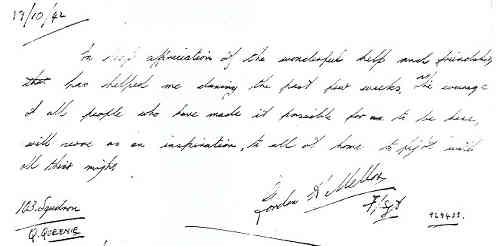 19/10/42
In deep appreciation of the wonderful help and friendship
that has helped me during the past few weeks, the courage
of all people who have made it possible for me to be here,
will serve as an inspiration, to all at home to fight with
all their might
Gordon H. Mellor
F/Sgt
103. Squadron
Q. QUEENIE